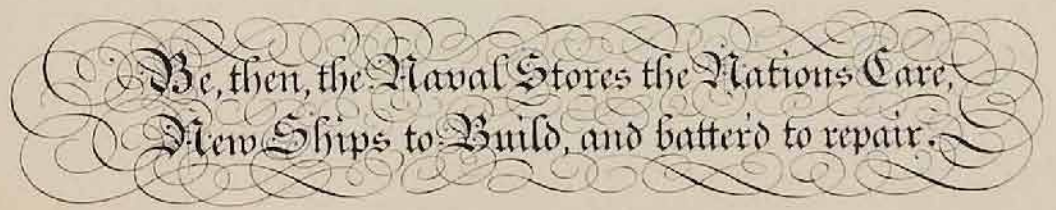 Be, then, the Naval Stores the Nations Care,
New Ships to Build, and batter'd to repair.